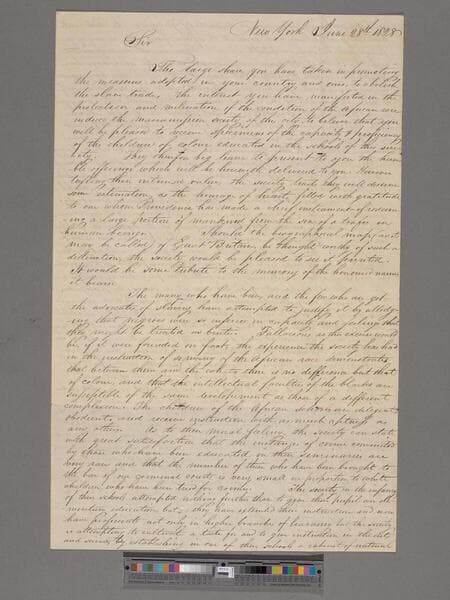 New York June 28th 1828
Sir
The large share you have taken in promoting
the measures adopted in your country and ours, to abolish
the slave trade, the interest you have manifested in the
protection and melioration of the condition of the African race
induce the manumission society of this city to believe that you
will be pleased to receive specimens of the capacity & proficiency
of the children of colour educated in the schools of this soci-
ety. They therefore beg leave to present to you the hum-
ble offerings which will be herewith delivered to you. However
trifling their intrinsic value, the society trusts they will deserve
some estimation, as the homage of hearts filled with gratitude
to one whom Providence has made a chief instrument of rescu-
ing a large portion of mankind from the
human beings. Should the biographical map, as it
may be called, of Great Britain be thought worthy of such a
distinction, the society would be pleased to see it printed.
It would be some tribute to the memory of the honoured names
it bears.
The many who have been, and the few who are yet
the advocates of slavery have attempted to justify it by alledg-
ing that negroes were so inferior in capacity and feeling that
they ought to be treated as brutes. Fallacious as this excuse would
be, if it were founded on fact, the experience the society has had
in the instruction of so many of the African race demonstrates
that between them and the whites there is no difference but that
of colour, and that the intellectual faculties of the blacks are
susceptible of the same developement as those of a different
complexion. The children of the African schools are diligent
obedient, and receive instruction with as much aptness as
any others. As to their moral feeling, the society can state
with great satisfaction that the instances of crimes committed
by those who have been educated in their seminaries are
very rare and that the number of them who have been brought to
the bar of our criminal courts is very small in proportion to white
children who have been tried for crimes. The society in the infancy
of their schools attempted nothing further than to give their pupils an ele-
mentary education but they have extended their instruction and now
have proficients not only in higher branches of learning but the society
is attempting to cultivate a taste for and to give instruction in the arts
and sciences by establishing in one of their schools a cabinet of natural